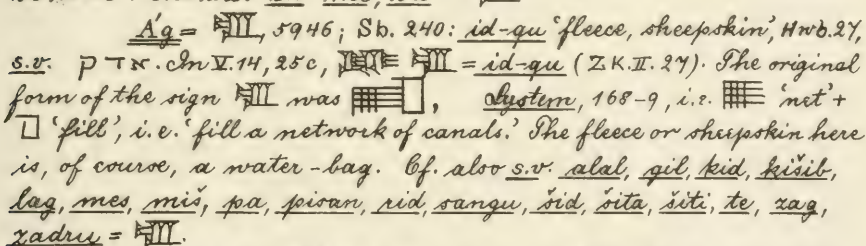 Ág = 𒋃, 5946; Sb. 240: id-qu 'fleece, sheepskin', Hwb. 27,
s.v. אדק. In V. 14, 25c, = id-qu (ZK. II. 27). The original
form of the sign 𒋃 was , System, 168-9, i.e. 'net' +
'fill', i.e. 'fill a network of canals.' The fleece or sheepskin here
is, of course, a water-bag. Cf. also s.v. alal, gil, kid, kišib,
lag, mes, miš, pa, pisan, rid, sangu, šid, šita, šiti, te, zag,
zadru = 𒋃.